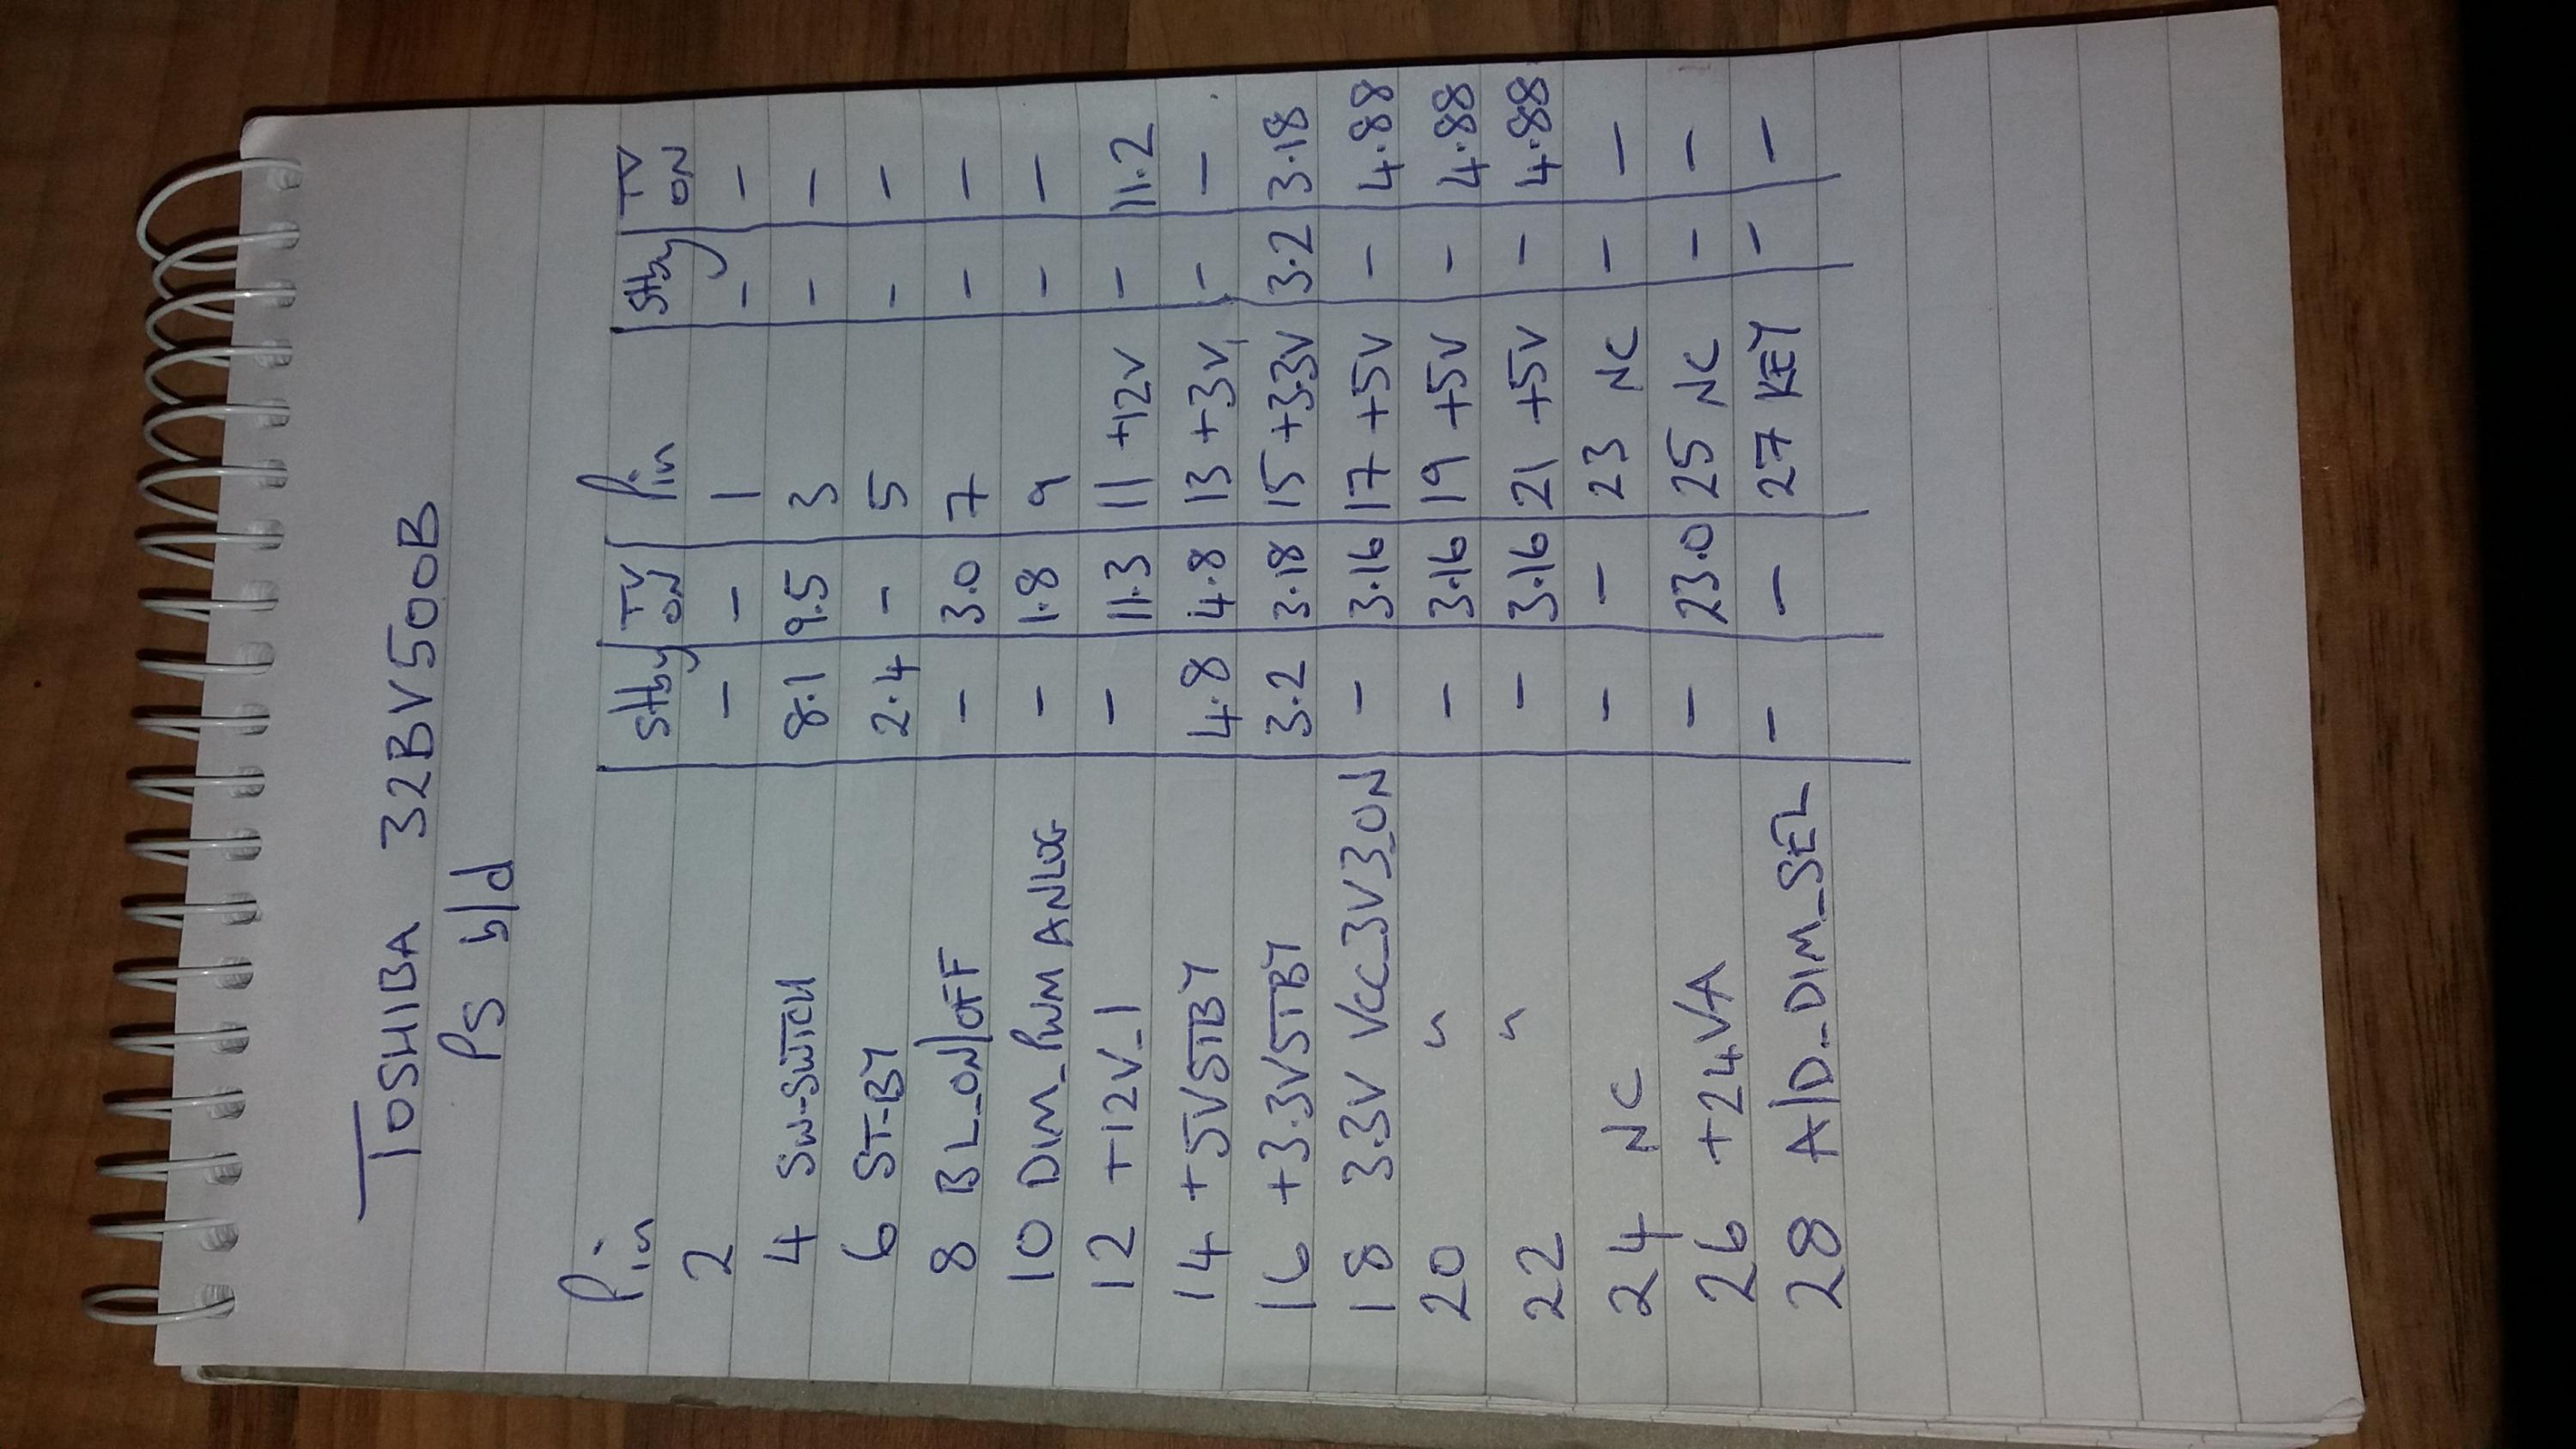 TOSHIBA 32BV500B
PS b/d
Pin Stby TV ON Pin Stby TV ON
2 - - 1 - -
4 SW-SWITCH 8.1 9.5 3 - -
6 ST-BY 2.4 - 5 - -
8 BL_ON/OFF - 3.0 7 - -
10 DIM_PWM ANLOG - 1.8 9 - -
12 +12V_1 - 11.3 11 +12V - 11.2
14 +5VSTBY 4.8 4.8 13 +3V, - -
16 +3.3VSTBY 3.2 3.18 15 +3.3V 3.2 3.18
18 3.3V VCC_3V3_ON - 3.16 17 +5V - 4.88
20 " - 3.16 19 +5V - 4.88
22 " - 3.16 21 +5V - 4.88
24 NC - - 23 NC - -
26 +24VA - 23.0 25 NC - -
28 A/D_DIM_SEL - - 27 KEY - -